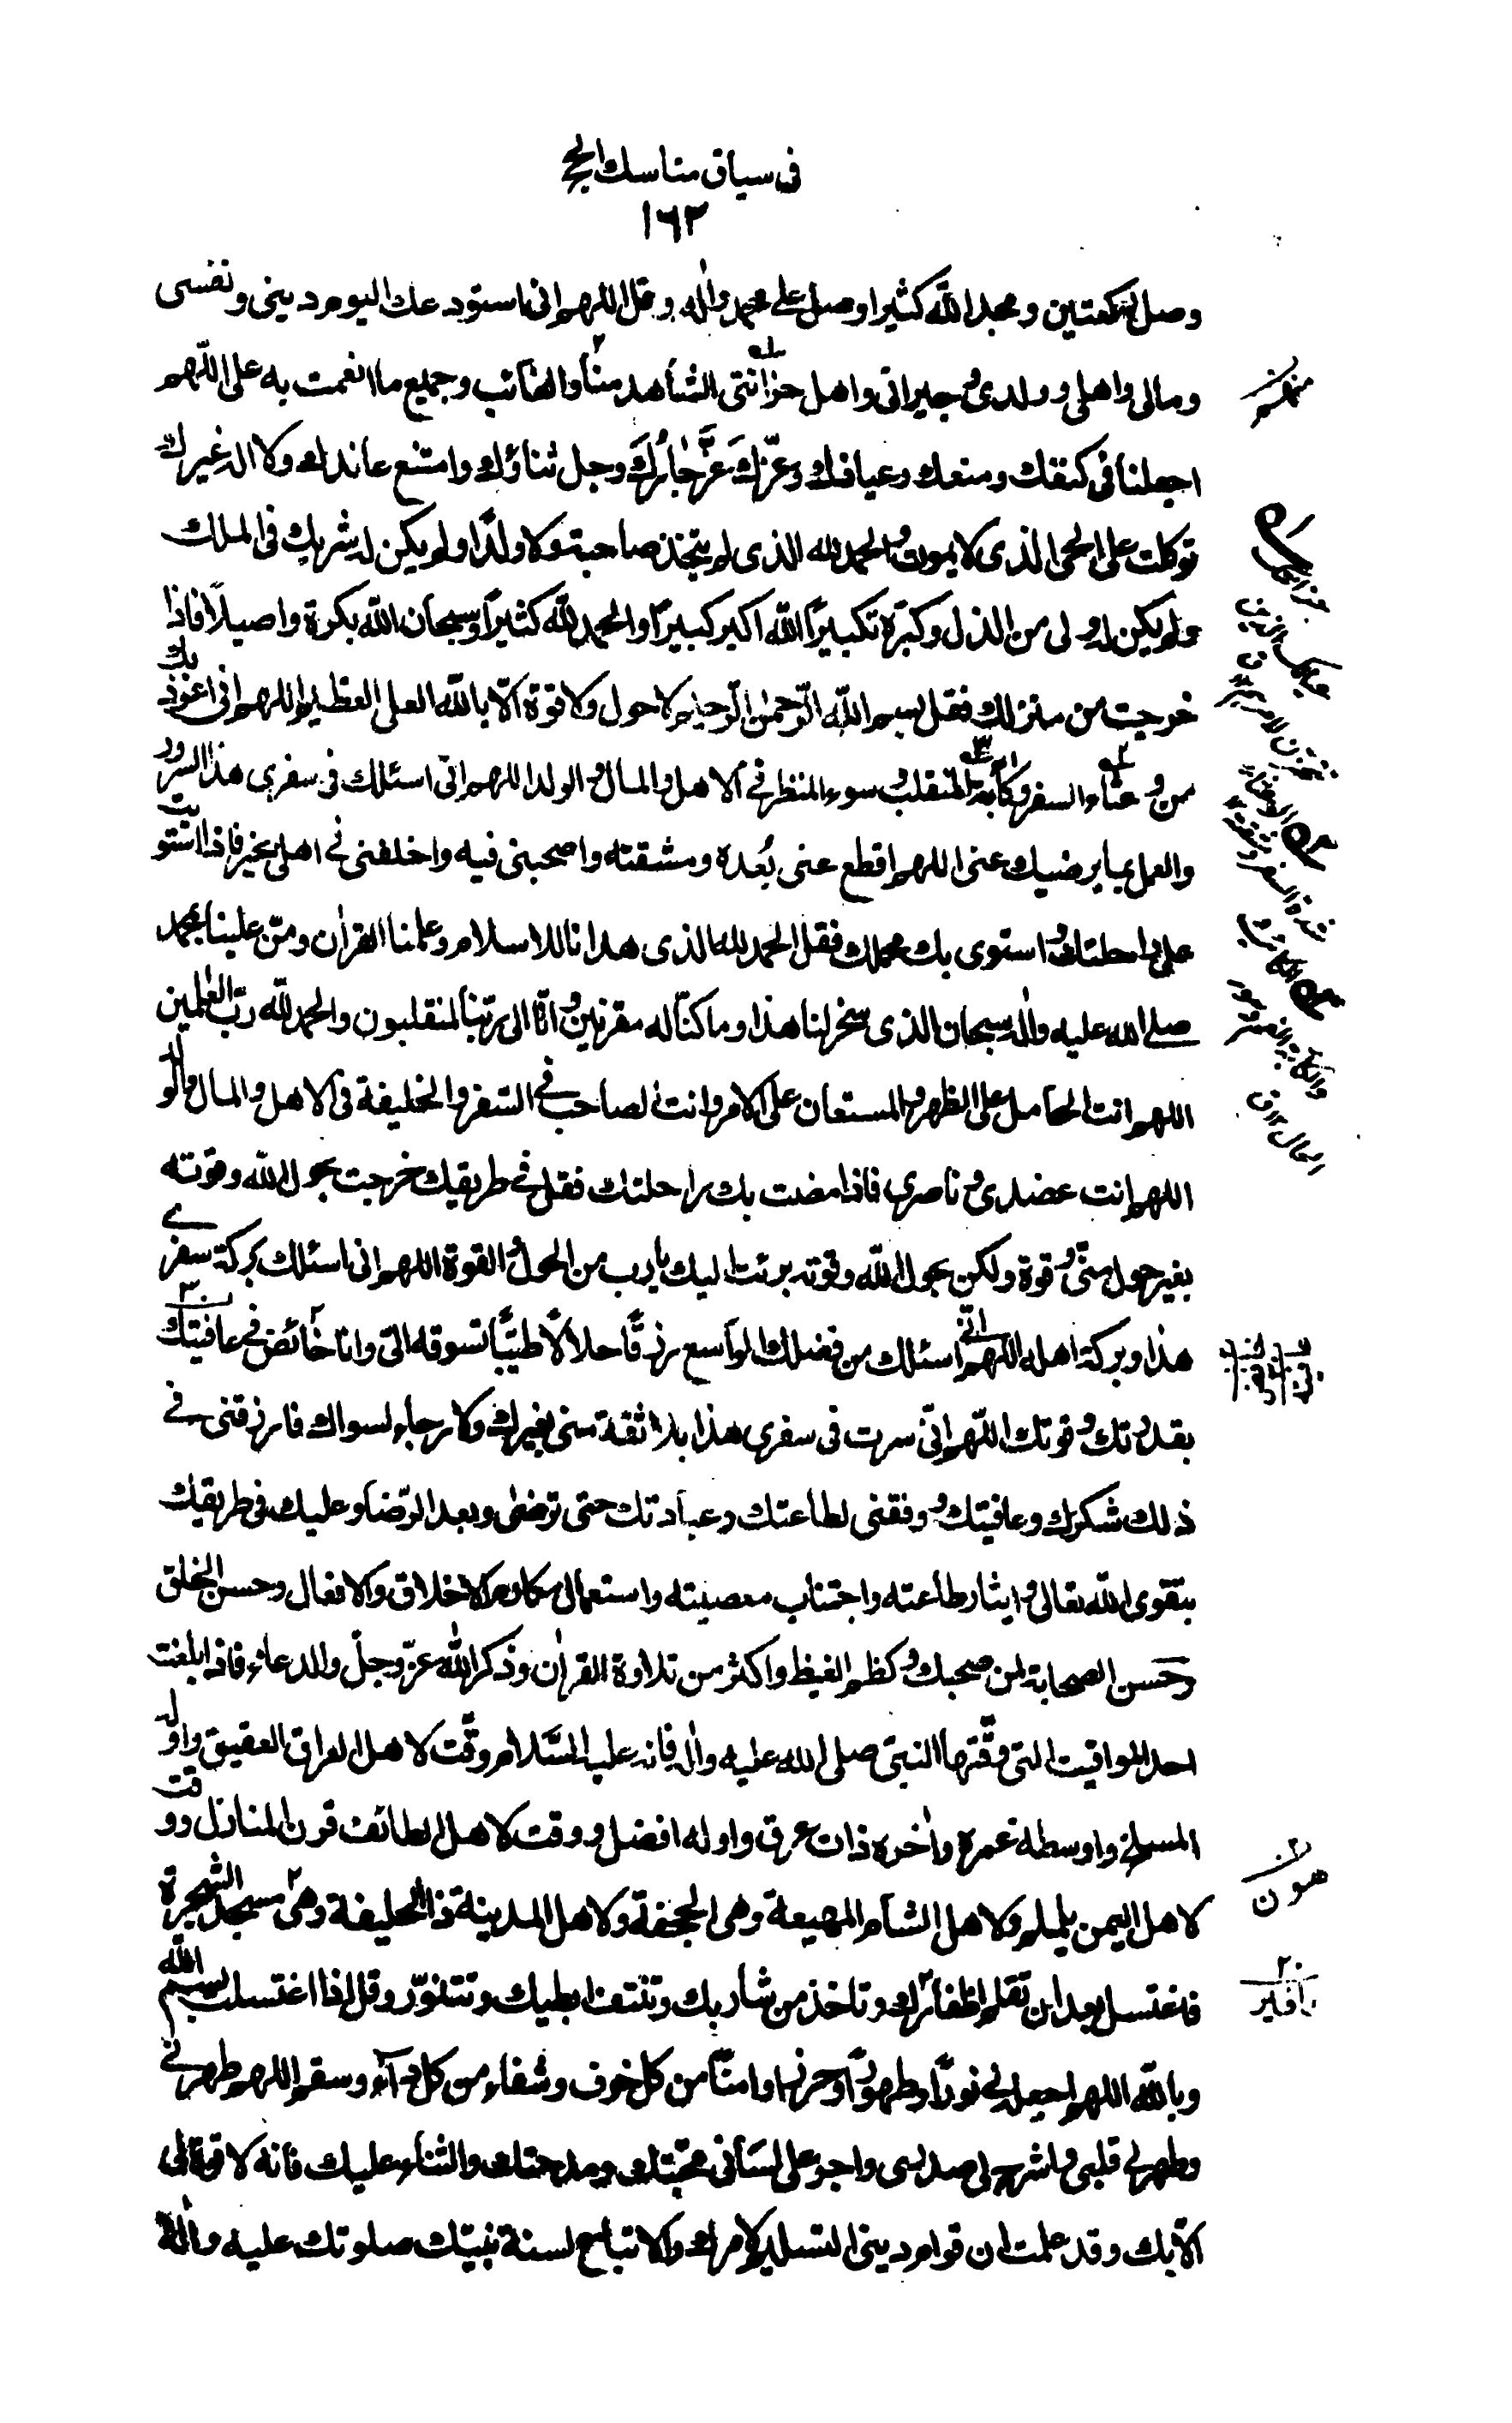 في سياق مناسك الحج
١٦٢
وصل ركعتين ومجد الله كثيرا وصل على محمد وآله وقل اللهم اني استودعك اليوم ديني ونفسي
ومالي واهلي وولدي وجيراني واهل حزانتي الشاهد منا والغائب وجميع ما انعمت به علي اللهم
اجعلنا في كنفك ومنعك وعياذك وعزك عَزَّ جارُكَ وجل ثناؤك وامتنع عائذك ولا اله غيرك
توكلت على الحي الذي لا يموت والحمد لله الذي لم يتخذ صاحبة ولا ولدًا ولم يكن له شريك في الملك
ولم يكن له ولي من الذل وكبره تكبيرًا الله اكبر كبيرًا والحمد لله كثيرًا وسبحان الله بكرة واصيلًا فاذا
خرجت من منزلك فقل بسم الله الرّحمٰن الرّحيم لا حول ولا قوة الّا بالله العلي العظيم اللهم اني اعوذ بك
من وعثاء السفر وكآبة المنقلب وسوء المنظر في الاهل والمال والولد اللهم اني اسئلك في سفري هذا السرور
والعمل بما يرضيك عني اللهم اقطع عني بُعده ومشقته واصحبني فيه واخلفني في اهلي بخير فاذا استوت
على راحلتك واستوى بك محملك فقل الحمد لله الذي هدانا للاسلام وعلمنا القرآن ومنّ علينا بمحمد
صلى الله عليه وآله سبحان الذي سخر لنا هذا وما كنّا له مقرنين وانّا الى ربّنا لمنقلبون والحمد لله ربّ العٰلمين
اللهم انت الحامل على الظهر والمستعان على الامر وانت الصاحب في السّفر والخليفة في الاهل والمال والولد
اللهم انت عضدي وناصري فاذا مضت بك راحلتك فقل في طريقك خرجت بحول الله وقوته
بغير حول منّي وقوة ولكن بحول الله وقوته برئت اليك يا رب من الحول والقوة اللهم اني اسئلك بركة سفري
هذا وبركة اهله اللهم اني اسئلك من فضلك الواسع رزقًا حلالًا طيّبًا تسوقه اليّ وانا خائض في عافيتك
بقدرتك وقوتك اللّهم انّي سرت في سفري هذا بلا ثقة مني بغيرك ولا رجاء لسواك فارزقني في
ذلك شكرك وعافيتك ووفقني لطاعتك وعبادتك حتى ترضى وبعد الرّضا وعليك في طريقك
بتقوى الله تعالى وايثار طاعته واجتناب معصيته واستعمال مكارم الاخلاق والافعال وحسن الخلق
وحسن الصحابة لمن صحبك وكظم الغيظ واكثر من تلاوة القرآن وذكر الله عزّ وجلّ والدعاء فاذا بلغت
احد المواقيت التي وقّتها النبيّ صلى الله عليه وآله فانه عليه السَّلام وقَّت لاهل العراق العقيق واوله
المسلخ واوسطه غمرة وآخره ذات عرق واوله افضل ووقت لاهل الطائف قرن المنازل ووقت
لاهل اليمن يلملم ولاهل الشام المهيعة وهي الجحفة ولاهل المدينة ذا الحليفة وهي مسجد الشجرة
فاغتسل بعد ان تقلم اظفارك وتاخذ من شاربك وتنتف ابطيك وتتنوّر وقل اذا اغتسلت بسم الله
وبالله اللهم اجعله لي نورًا وطهورًا وحرزا وامنًا من كل خوف وشفاء من كل داء وسقم اللهم طهرني
وطهر لي قلبي واشرح لي صدري واجر على لساني محبّتك ومدحتك والثناء عليك فانه لا قوة لي
الّا بك وقد علمت ان قوام ديني التسليم لامرك والاتباع لسنة نبيّك صلوتك عليه وآله